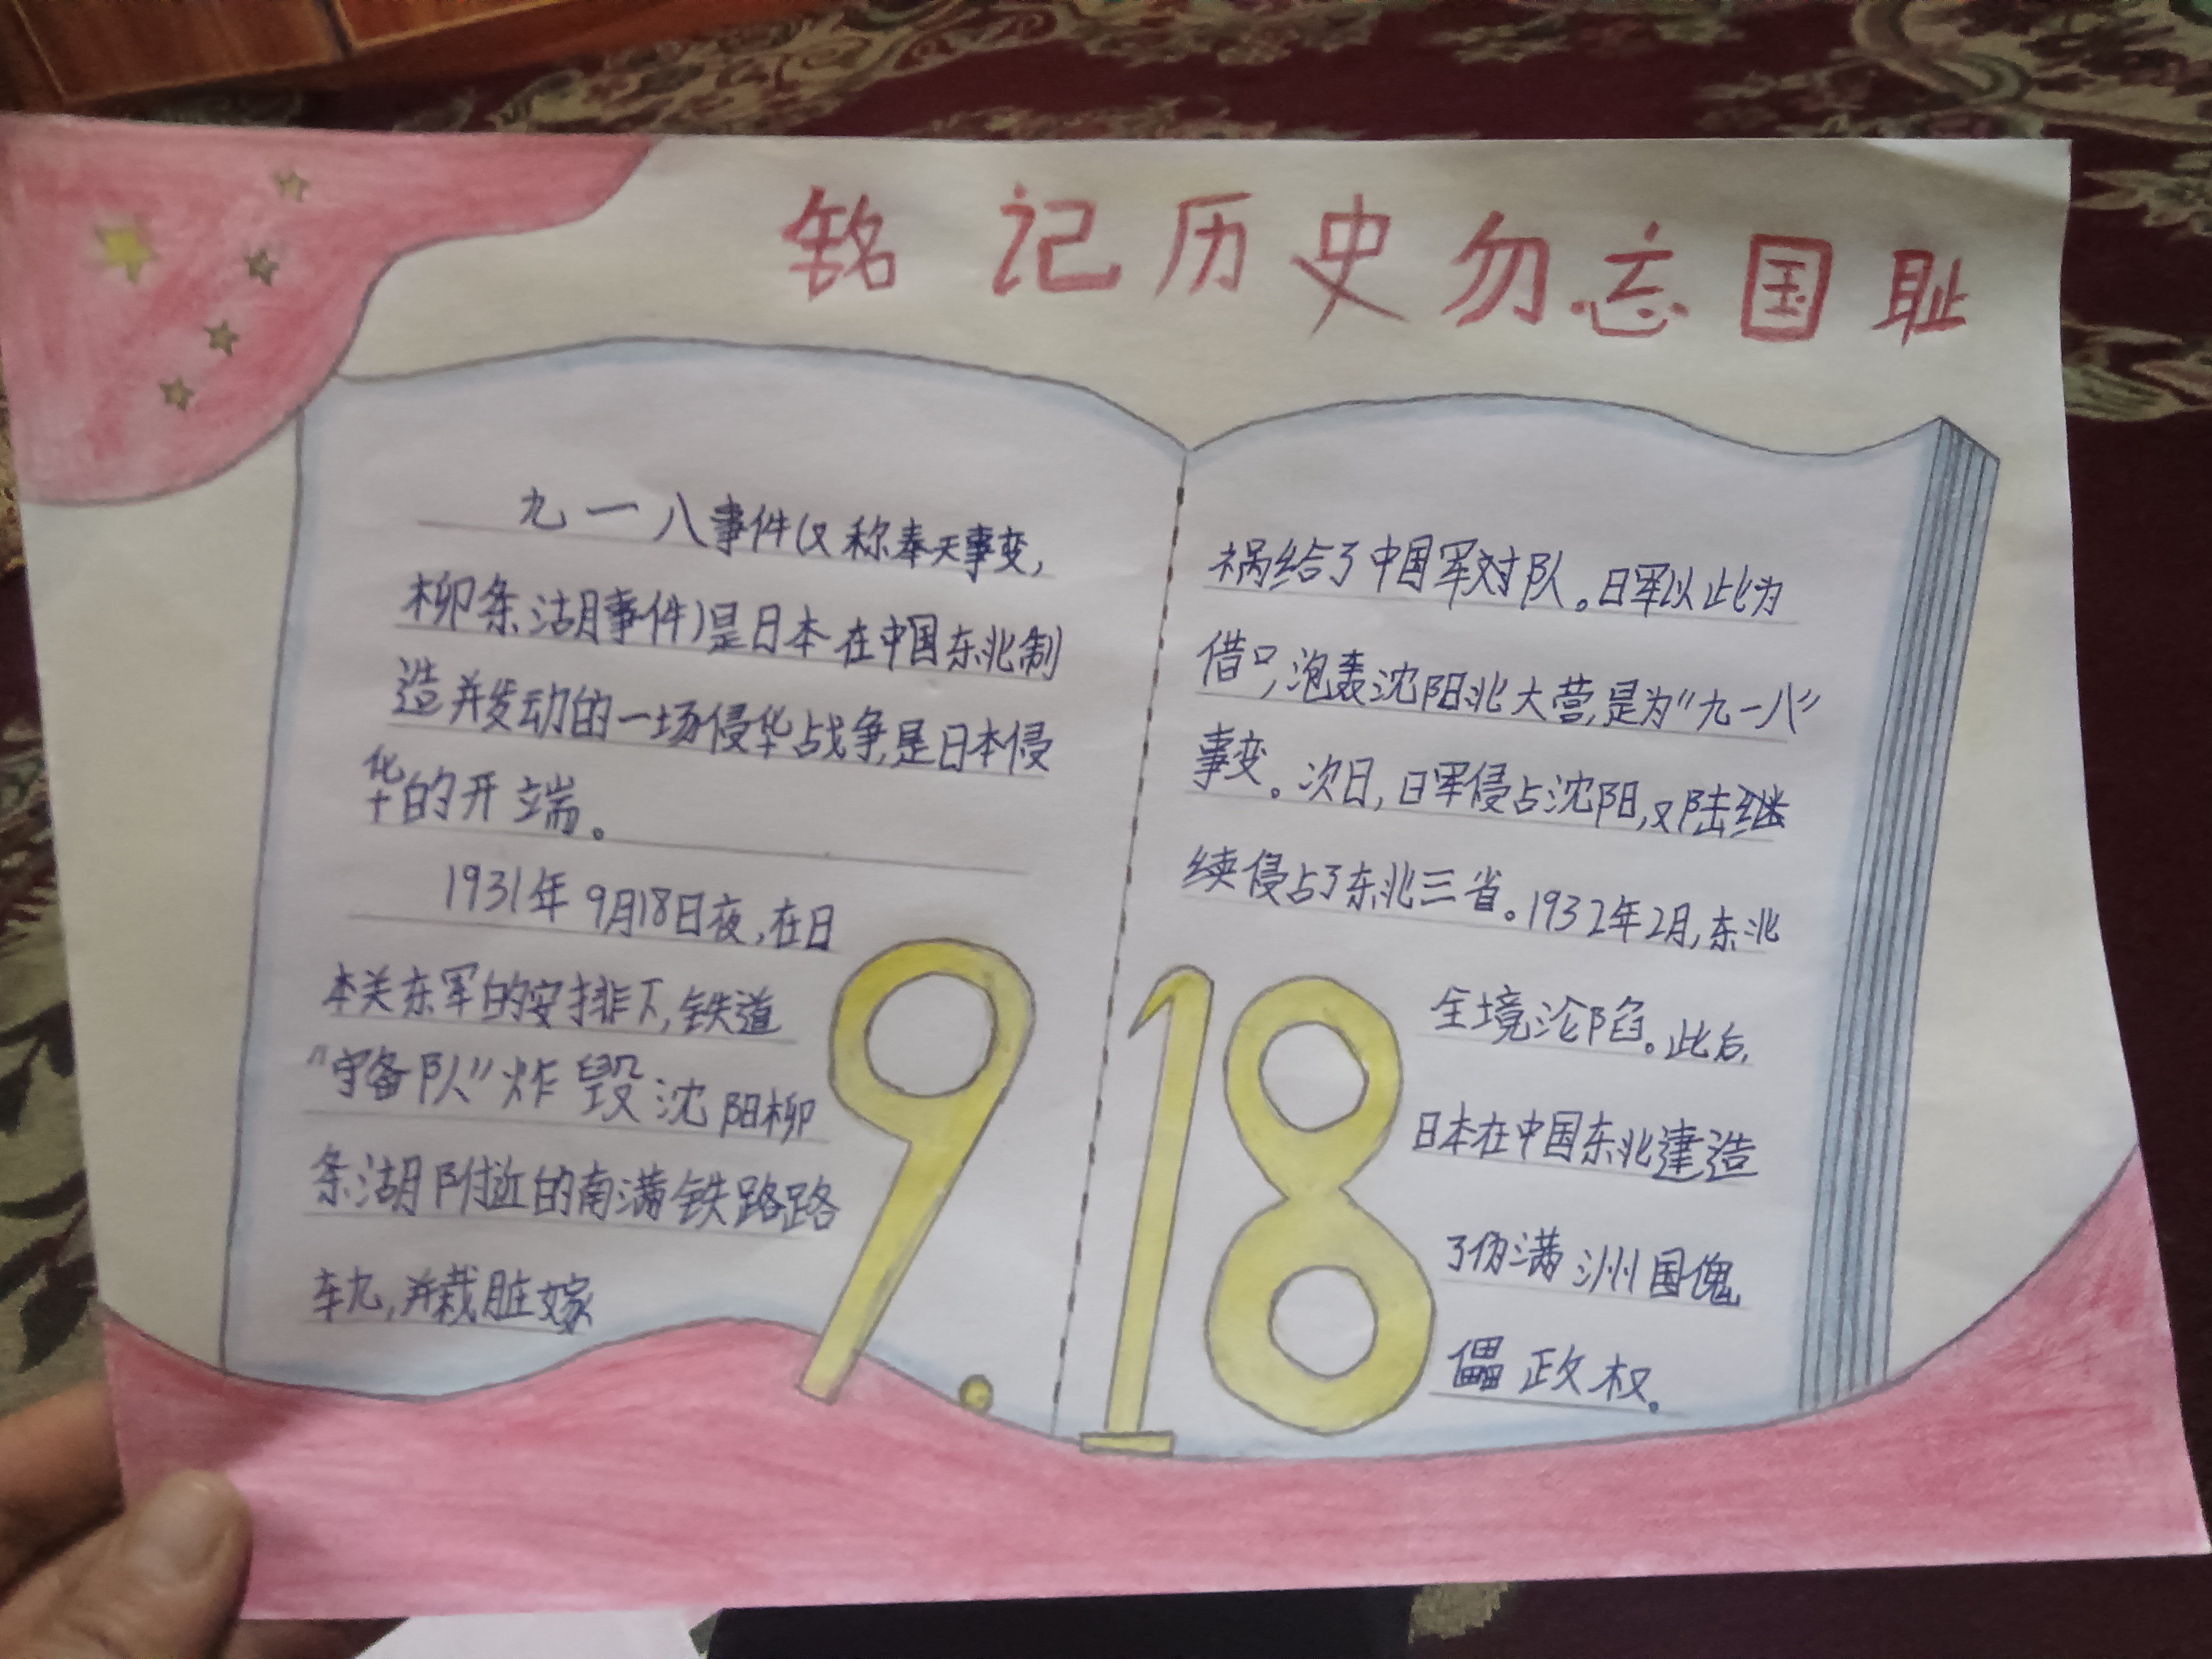 铭记历史勿忘国耻
九一八事件(又称奉天事变,
柳条湖事件)是日本在中国东北制
造并发动的一场侵华战争,是日本侵
华的开端。
1931年9月18日夜,在日
本关东军的安排下,铁道
"守备队"炸毁沈阳柳
条湖附近的南满铁路路
车九,并栽脏嫁
祸给了中国军对队。日军以此为
借口,泡轰沈阳北大营,是为"九一八"
事变。次日,日军侵占沈阳,又陆继
续侵占了东北三省。1932年2月,东北
全境沦陷。此后,
日本在中国东北建造
了伪满洲国傀
儡政权。
9.18